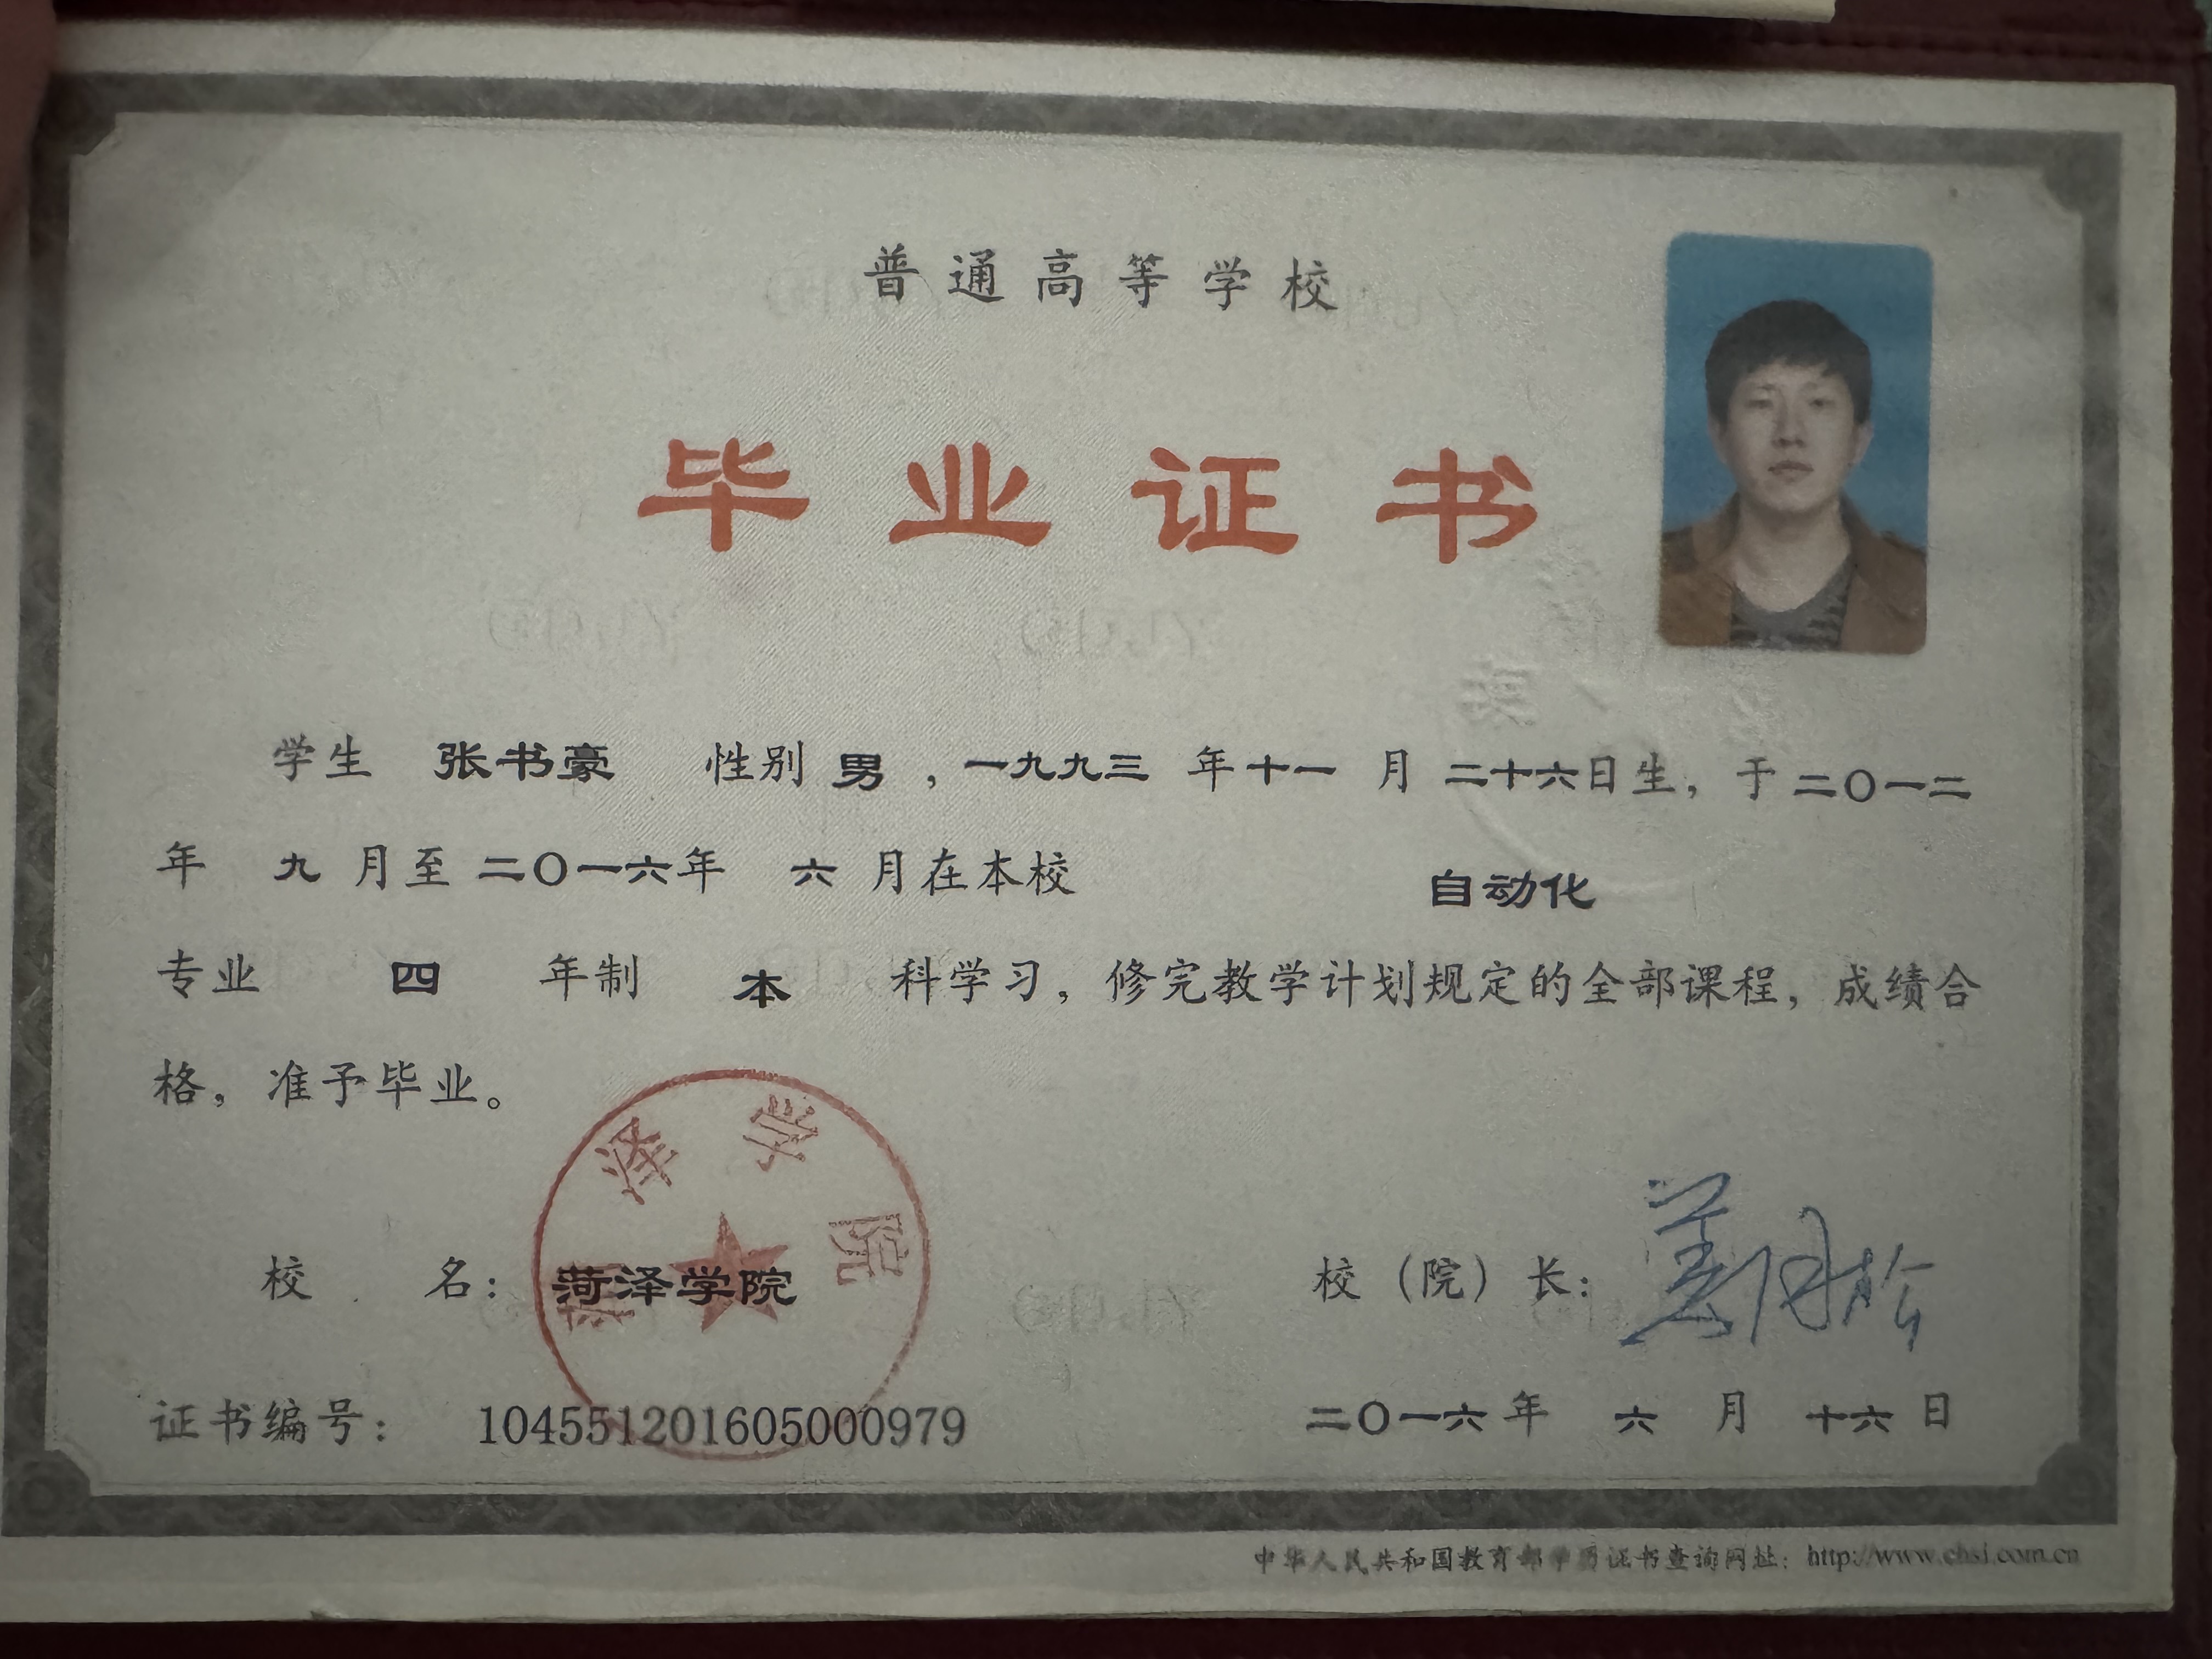 普通高等学校
毕业证书
学生 张书豪 性别 男 ，一九九三 年 十一 月 二十六日生，于 二〇一二
年 九 月至 二〇一六年 六 月在本校 自动化
专业 四 年制 本 科学习，修完教学计划规定的全部课程，成绩合
格，准予毕业。
菏泽学院
校 名： 菏泽学院 校（院）长：
证书编号： 104551201605000979 二〇一六 年 六 月 十六 日
中华人民共和国教育部学历证书查询网址：http://www.chsi.com.cn